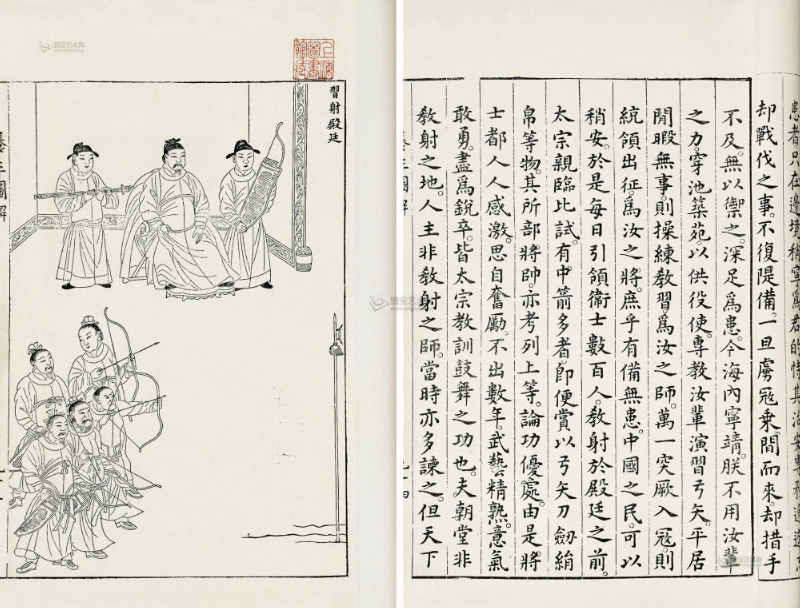 患者只在邊境稍寧爲君的恃其治安專務逸遊
却戰伐之事。不復隄備。一旦虜寇乗間而來。却措手
不及。無以禦之。深足爲患。今海內寧靖。朕不用汝輩
之力。穿池築苑。以供役使。專教汝輩演習弓矢。平居
閒暇無事。則操練教習。爲汝之師。萬一突厥入寇。則
統領出征。爲汝之將。庶乎有備無患。中國之民。可以
稍安。於是每日引領衞士數百人。教射於殿廷之前。
太宗親臨比試。有中箭多者。卽便賞以弓矢刀劒絹
帛等物。其所部將帥。亦考列上等。論功優處。由是將
士都人人感激。思自奮勵。不出數年。武藝精熟。意氣
敢勇。盡爲銳卒。皆太宗教訓鼓舞之功也。夫朝堂非
教射之地。人主非教射之師。當時亦多諫之。但天下
習射殿廷
養正圖解